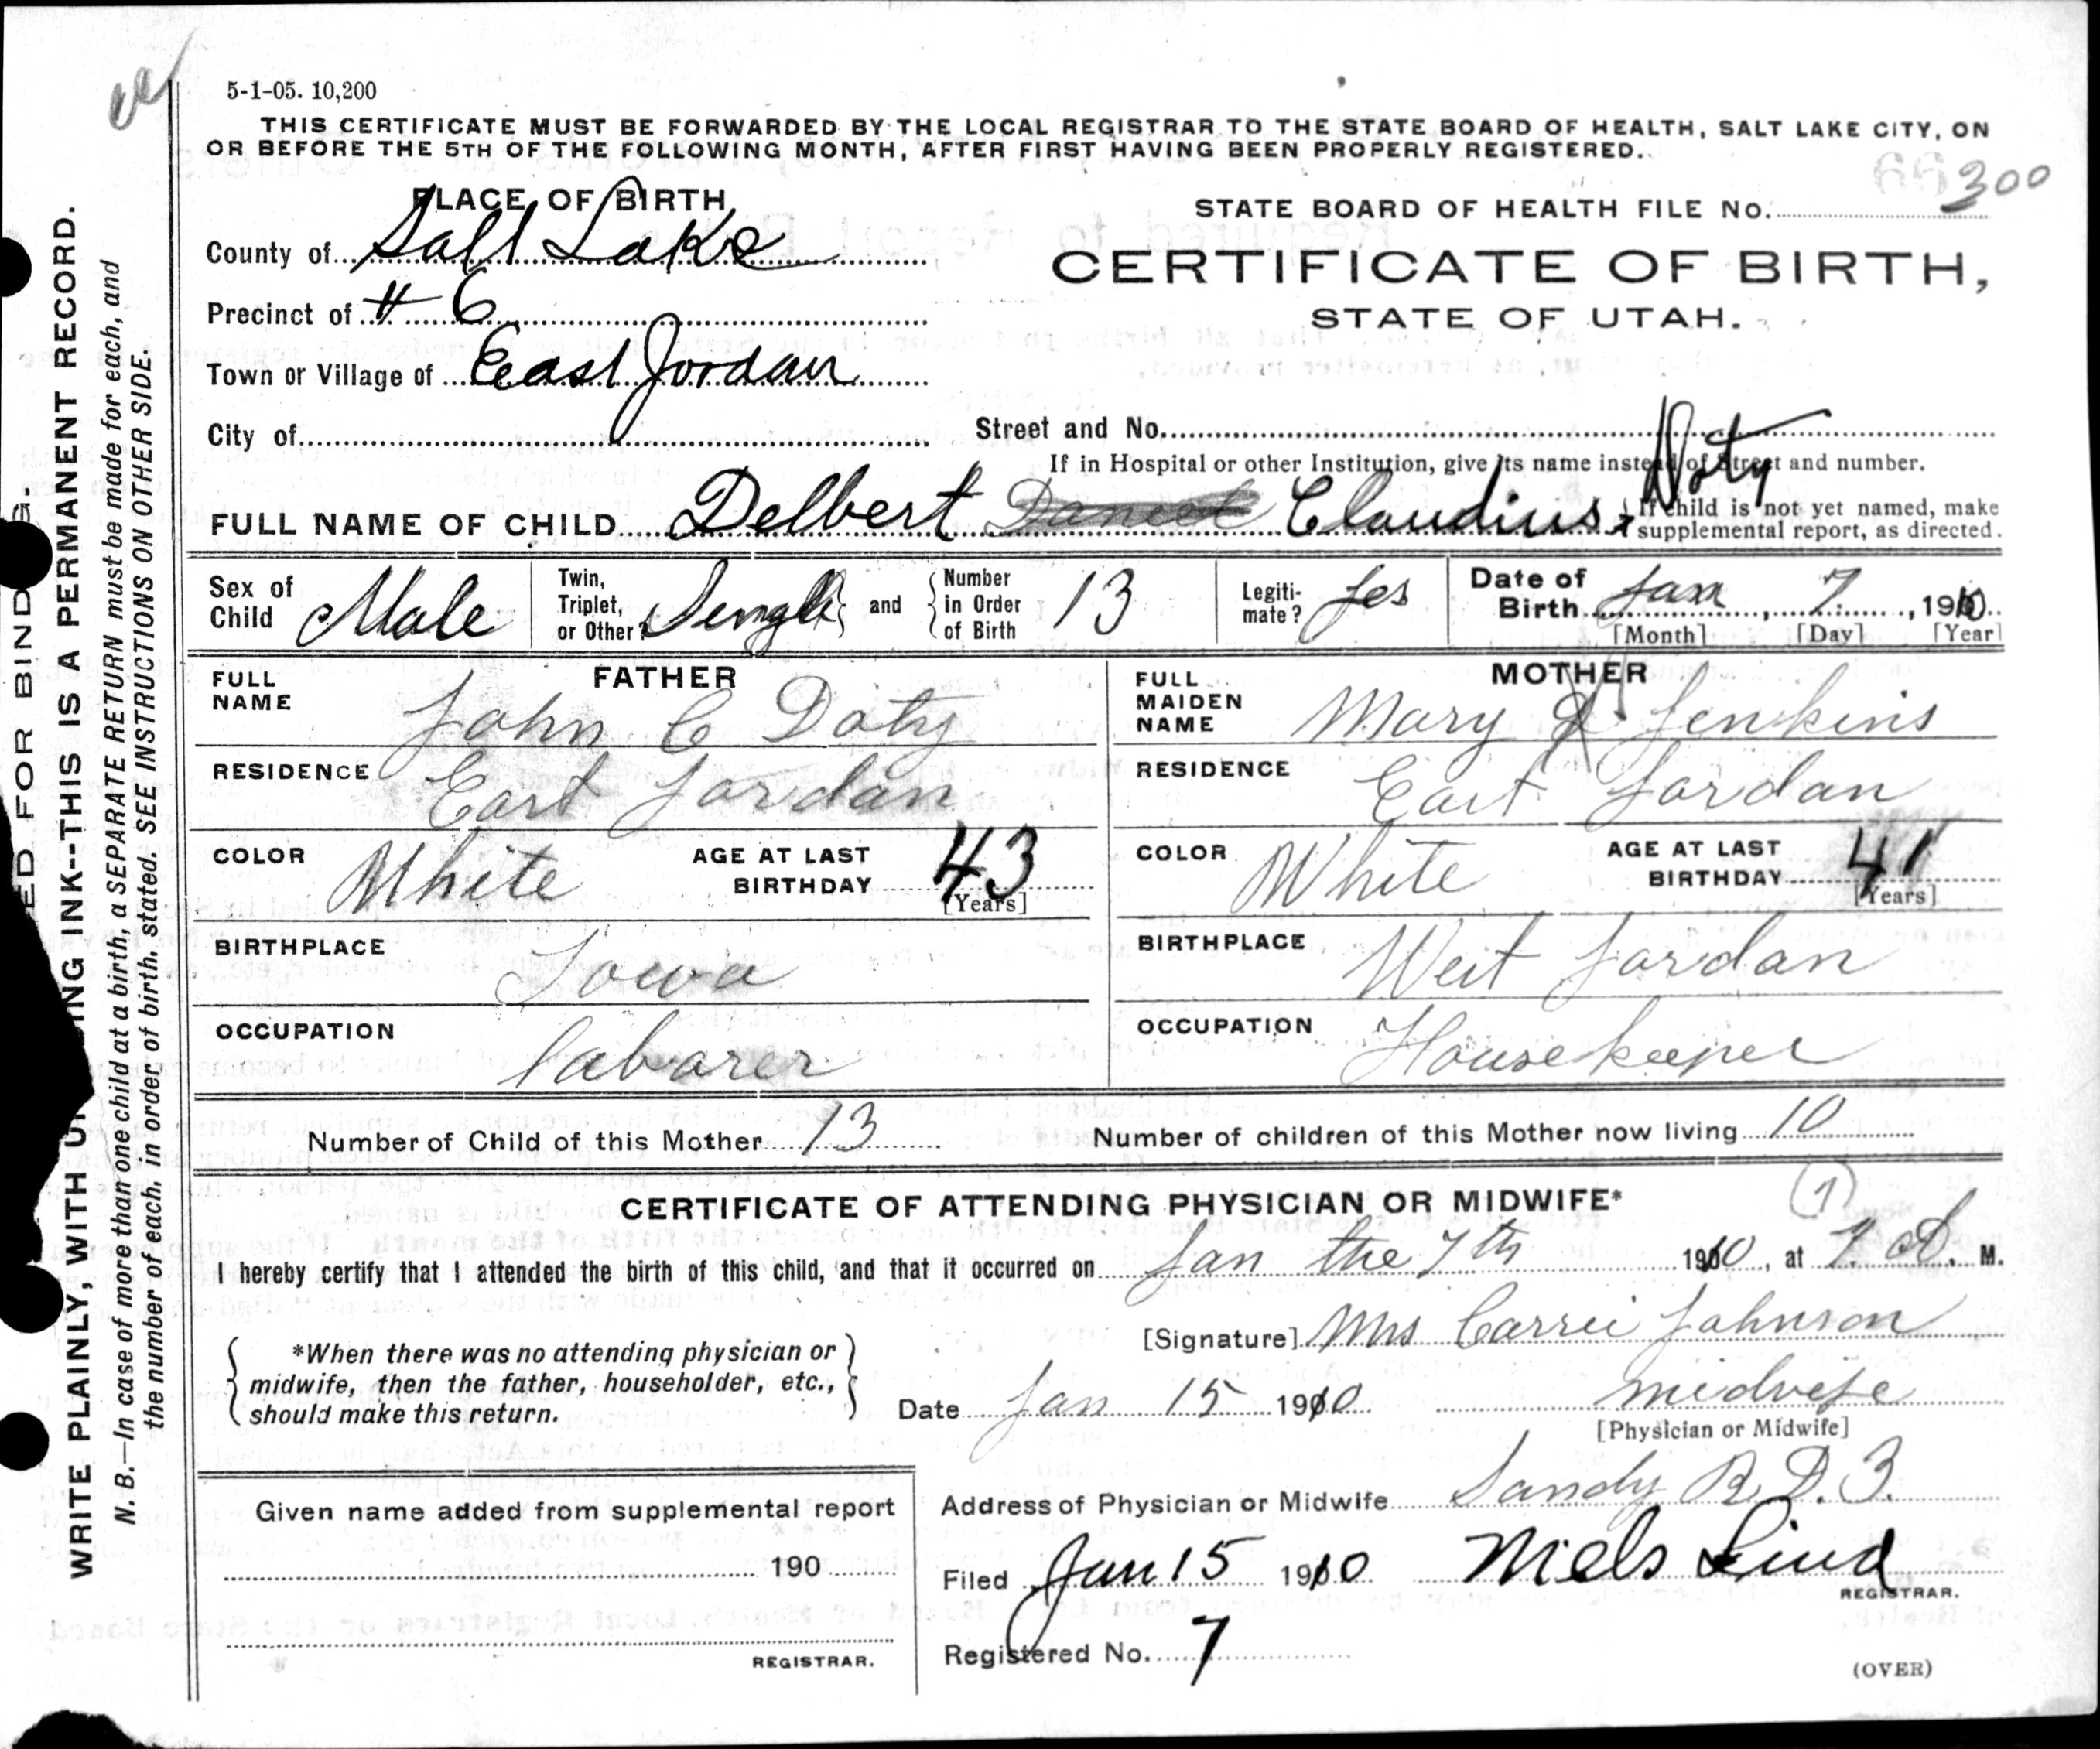 5-1-05. 10,200
THIS CERTIFICATE MUST BE FORWARDED BY THE LOCAL REGISTRAR TO THE STATE BOARD OF HEALTH, SALT LAKE CITY, ON
OR BEFORE THE 5TH OF THE FOLLOWING MONTH, AFTER FIRST HAVING BEEN PROPERLY REGISTERED.
PLACE OF BIRTH
County of Salt Lake
Precinct of # 6
Town or Village of East Jordan
City of
STATE BOARD OF HEALTH FILE No. 300
CERTIFICATE OF BIRTH,
STATE OF UTAH.
Street and No.
If in Hospital or other Institution, give its name instead of Street and number.
FULL NAME OF CHILD Delbert Daniel Claudius Doty
If child is not yet named, make
supplemental report, as directed.
Sex of Child Male
Twin, Triplet, or Other? Single and Number in Order of Birth 13
Legitimate? Yes
Date of Birth Jan 7, 1910
[Month] [Day] [Year]
FATHER
FULL NAME John C Doty
RESIDENCE East Jordan
COLOR White AGE AT LAST BIRTHDAY 43
[Years]
BIRTHPLACE Iowa
OCCUPATION laborer
MOTHER
FULL MAIDEN NAME Mary Jenkins
RESIDENCE East Jordan
COLOR White AGE AT LAST BIRTHDAY 41
[Years]
BIRTHPLACE West Jordan
OCCUPATION Housekeeper
Number of Child of this Mother 13 Number of children of this Mother now living 10
CERTIFICATE OF ATTENDING PHYSICIAN OR MIDWIFE*
1
I hereby certify that I attended the birth of this child, and that it occurred on Jan the 7th 1910, at 7. A. M.
*When there was no attending physician or
midwife, then the father, householder, etc.,
should make this return.
[Signature] Mrs Carrie Johnson
Date Jan 15 1910 midwife
[Physician or Midwife]
Given name added from supplemental report
190
REGISTRAR.
Address of Physician or Midwife Sandy R.D. 3.
Filed Jan 15 1910 Niels Lind
REGISTRAR.
Registered No. 7
(OVER)
ED FOR BINDING.
WRITE PLAINLY, WITH UNFADING INK--THIS IS A PERMANENT RECORD.
N. B.—In case of more than one child at a birth, a SEPARATE RETURN must be made for each, and
the number of each, in order of birth, stated. SEE INSTRUCTIONS ON OTHER SIDE.